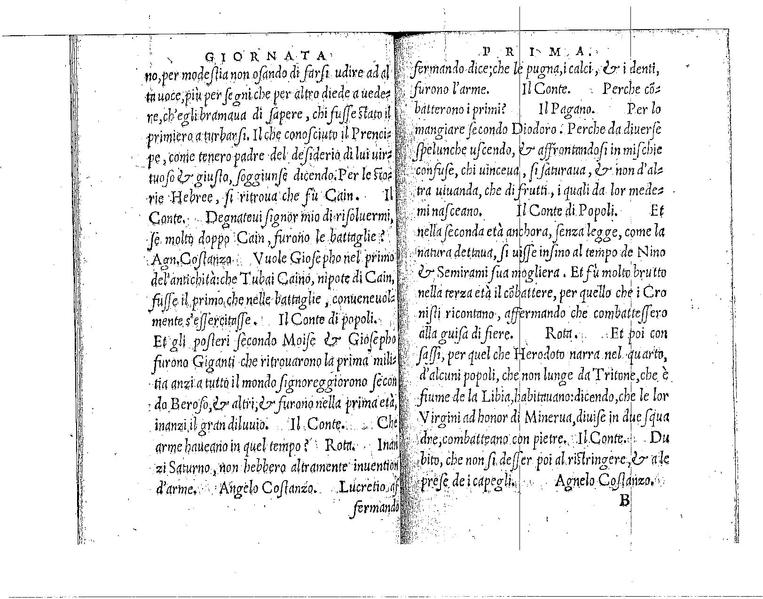 GIORNATA
no, per modestia non osando di farsi udire ad al
ta uoce, più per segni, che per altro diede a uede-
re, ch'egli bramaua di sapere, chi fusse stato il
primiero a turbarsi. Il che conosciuto il Prenci-
pe, come tenero padre del desiderio di lui uir-
tuoso & giusto, soggiunse dicendo. Per le sto-
rie Hebree, si ritroua che fù Cain. Il
Conte. Degnateui signor mio di risoluermi,
se molto doppo Cain, furono le battaglie?
Agn. Costanzo. Vuole Giosepho nel primo
del'antichità: che Tubal Caino, nipote di Cain,
fusse il primo, che nelle battaglie, conueneuol-
mente s'essercitasse. Il Conte di popoli.
Et gli posteri secondo Moise & Giosepho
furono Giganti che ritrouarono la prima mili-
tia anzi a tutto il mondo signoreggiorono secon
do Beroso, & altri; & furono nella prima età,
inanzi il gran diluuio. Il Conte. Che
arme haueano in quel tempo? Rota. Inan
zi Saturno, non hebbero altramente inuention
d'arme. Angelo Costanzo. Lucretio af
fermando
PRIMA.
fermando dice; che le pugna, i calci, & i denti,
furono l'arme. Il Conte. Perche cõ-
batterono i primi? Il Pagano. Per lo
mangiare secondo Diodoro. Perche da diuerse
spelunche uscendo, & affrontandosi in mischie
confuse, chi uinceua, si satiaua, & non d'al-
tra uiuanda, che di frutti, i quali da lor mede-
mi nasceano. Il Conte di Popoli. Et
nella seconda età anchora, senza legge, come la
natura dettaua, si uisse insino al tempo de Nino
& Semirami sua mogliera. Et fù molto brutto
nella terza età il cõbattere, per quello che i Cro
nisti ricontano, affermando che combattessero
alla guisa di fiere. Rota. Et poi con
sassi, per quel che Herodoto narra nel quarto,
d'alcuni popoli, che non lunge da Tritone, che è
fiume de la Libia, habitauano: dicendo, che le lor
Virgini ad honor di Minerua, diuise in due squa
dre, combatteano con pietre. Il Conte. Du
bito, che non si desser poi al ristringere, & a le
prese de i capegli. Agnelo Costanzo.
B